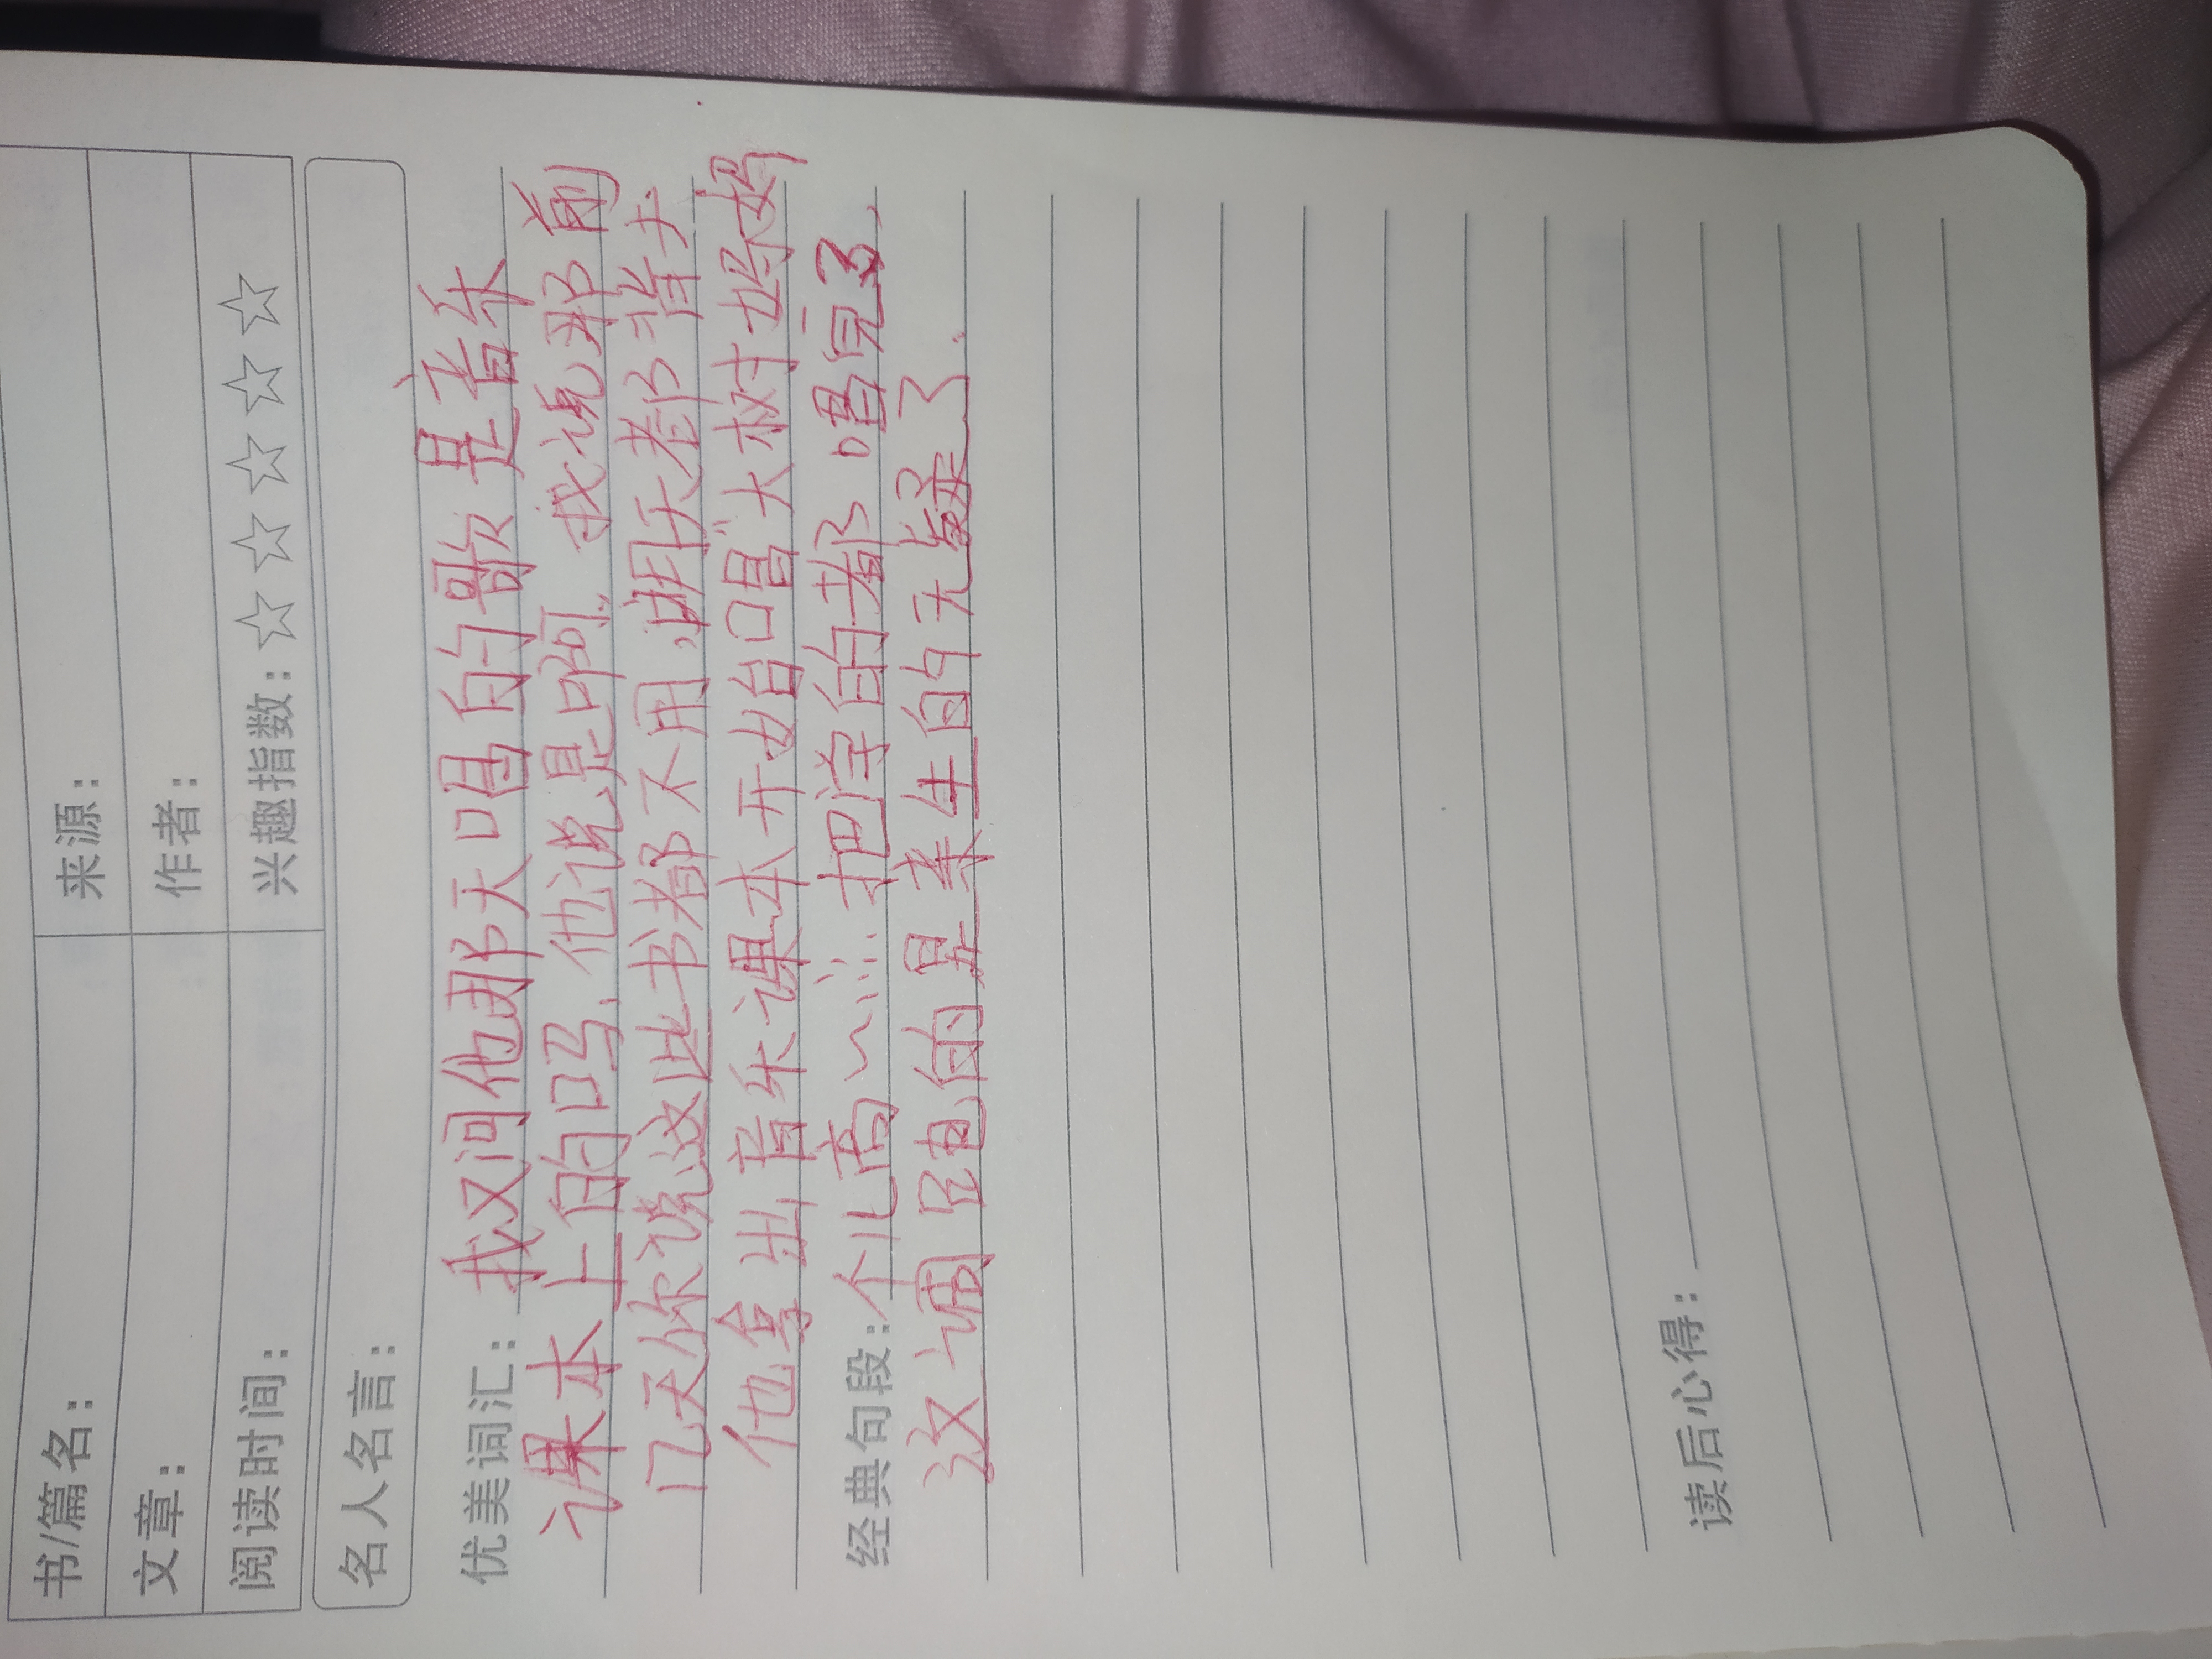 书/篇名：
来源：
文章：
作者：
阅读时间：
兴趣指数：☆☆☆☆☆
名人名言：
优美词汇：我又问他那天唱的歌是音乐
课本上的吗，他说是啊，我说那前
几天你说这些书都不用，明天都背去
他拿出音乐课本开始唱"大树妈妈
经典句段：个儿高～……把学的都唱完了、
这调跑的是亲生的无疑了.
读后心得：